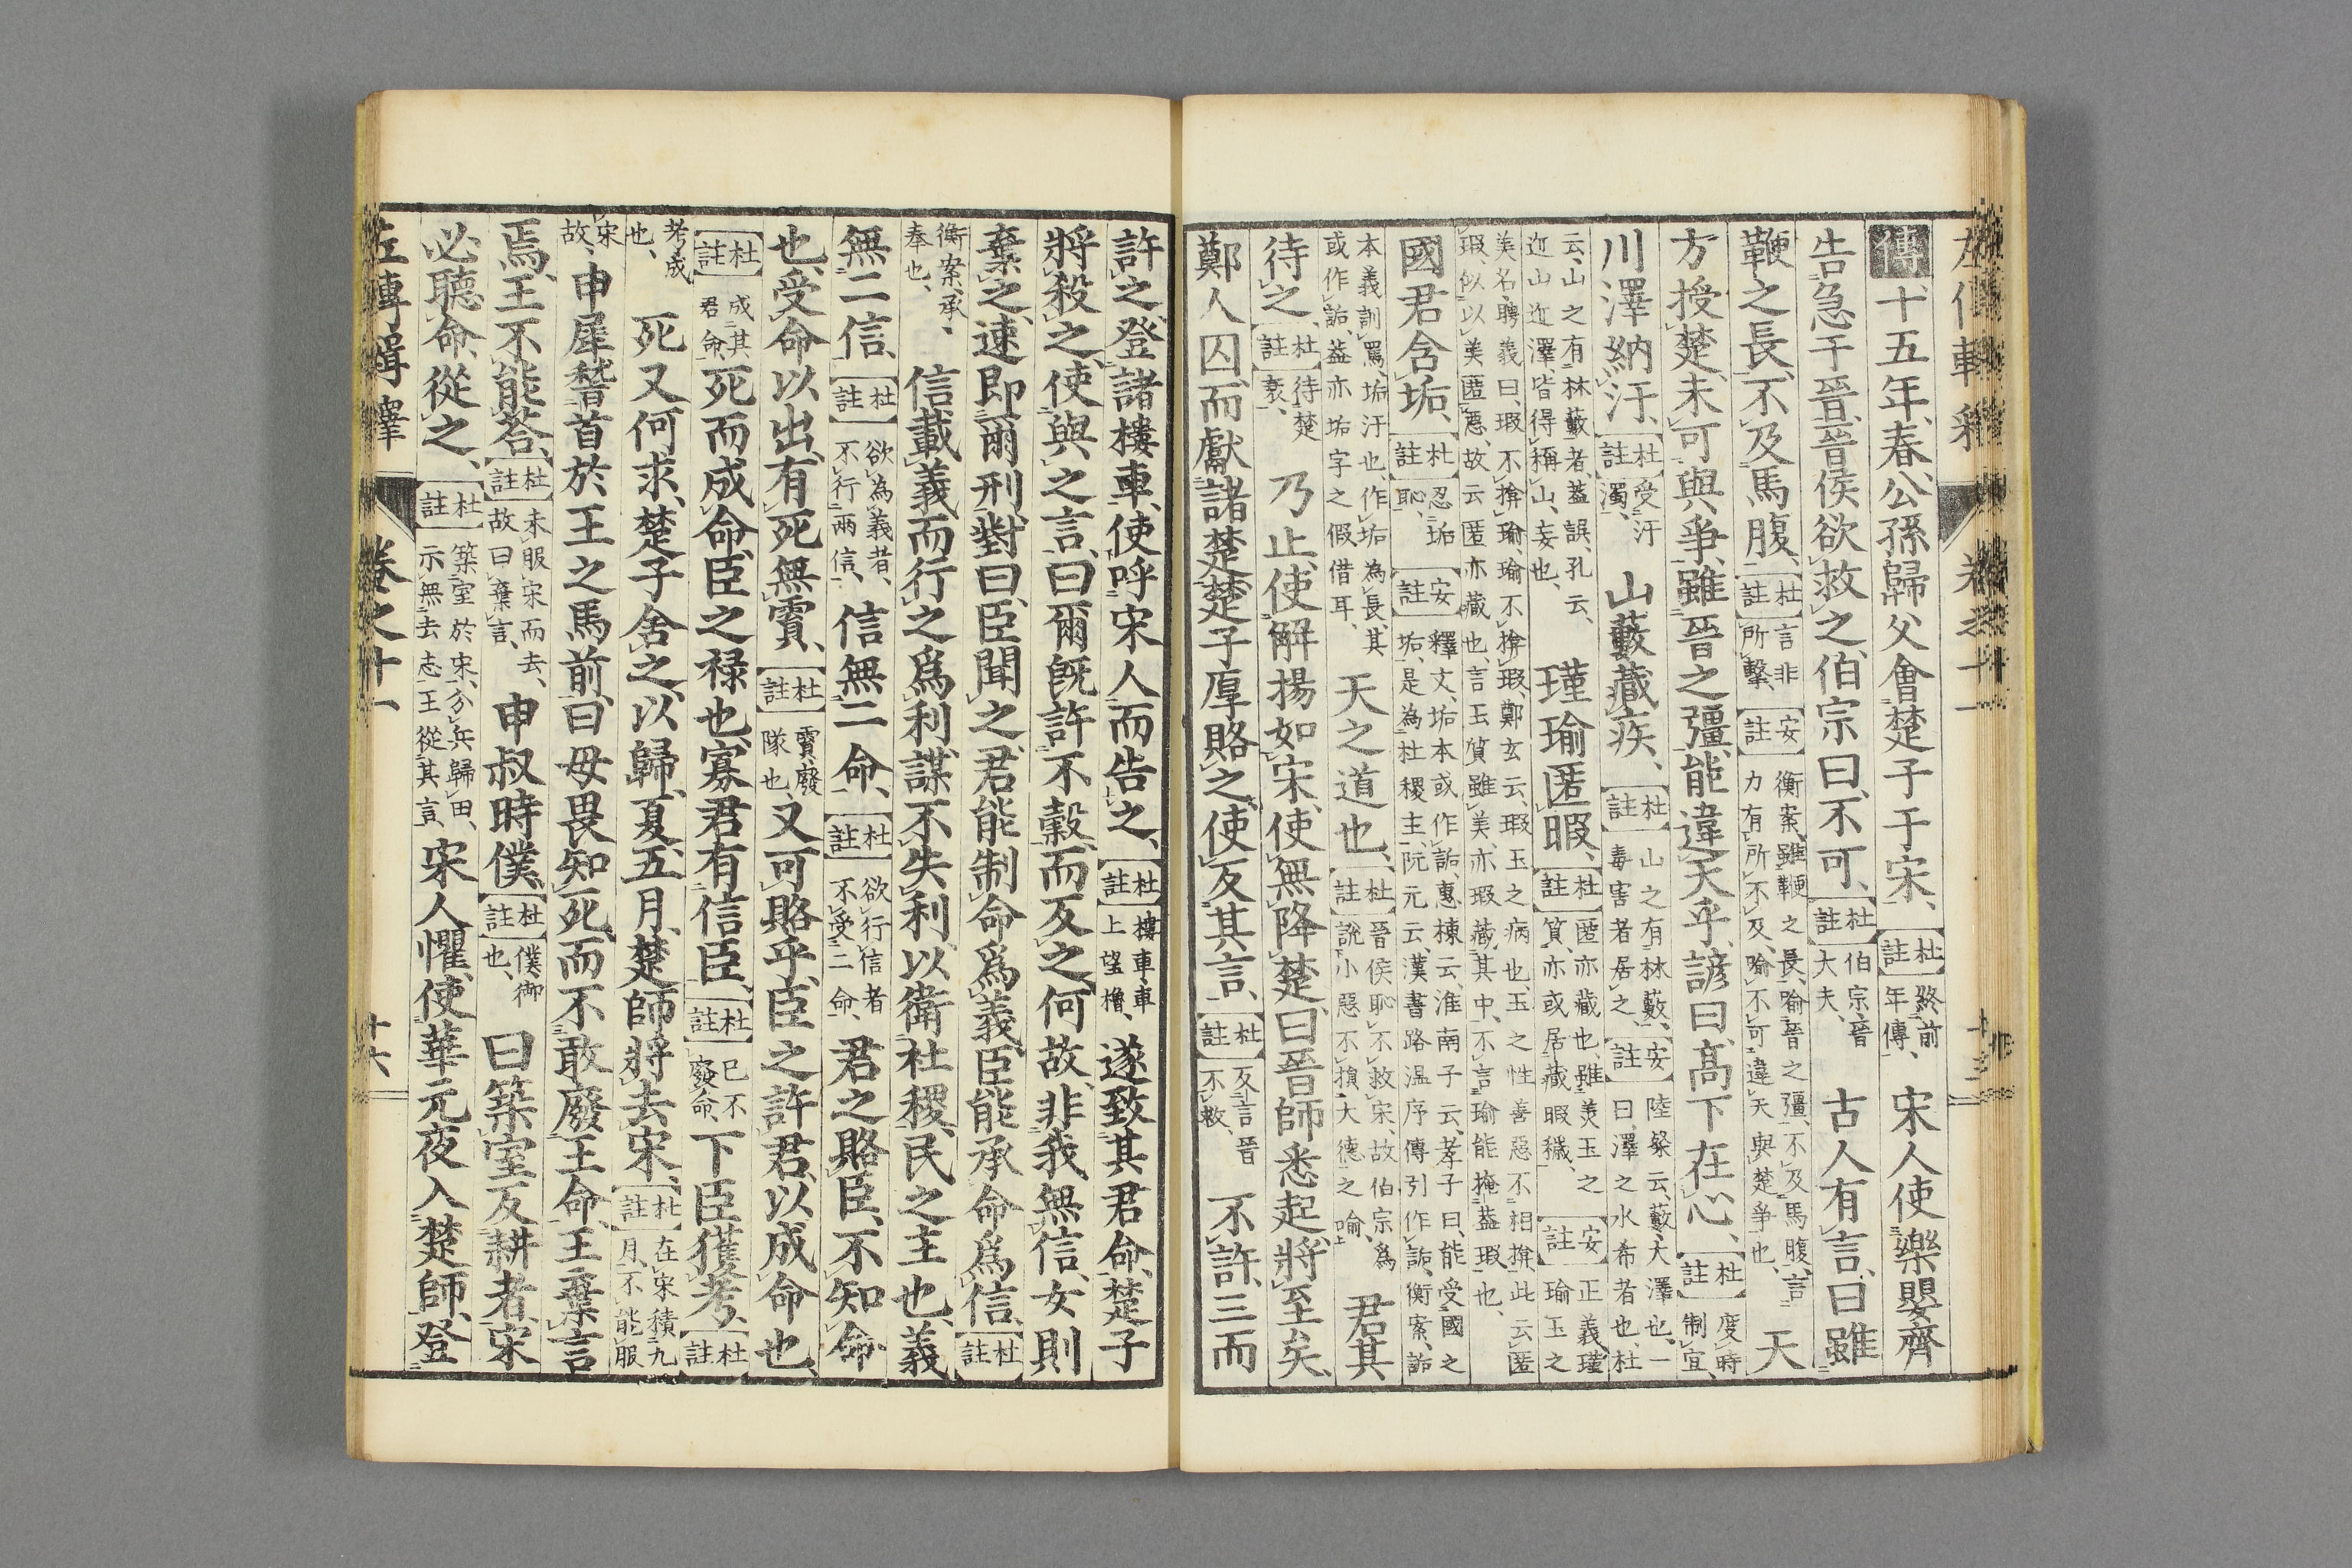 傳十五年、春、公孫歸父會楚子于宋、【杜註】終前年傳、宋人使樂嬰齊
告急于晉、晉侯欲救之、伯宗曰、不可、【杜註】伯宗、晉大夫、古人有言、曰、雖
鞭之長、不及馬腹、【杜註】言非所擊、【安註】衡案、雖鞭之長、喻晉之彊、不及馬腹、言力有所不及、喻不可違天與楚爭也、天
方授楚、未可與爭、雖晉之彊、能違天乎、諺曰、高下在心、【杜註】度時制宜、
川澤納汙、【杜註】受汙濁、山藪藏疾、【杜註】山之有林藪、毒害者居之、【安註】陸粲云、藪、大澤也、一曰、澤之水希者也、杜
云、山之有林藪者、蓋誤、孔云、近山近澤、皆得稱山、妄也、瑾瑜匿暇、【杜註】匿亦藏也、雖美玉之質、亦或居藏暇穢、【安註】正義、瑾瑜玉之
美名、聘義曰、瑕不揜瑜、瑜不揜瑕、鄭玄云、瑕、玉之病也、玉之性、善惡不相揜、此云匿瑕、似以美匿惡、故云匿亦藏也、言玉質雖美、亦瑕藏其中、不言瑜能掩蓋瑕也、
國君含垢、【杜註】忍垢恥、【安註】釋文、垢本或作詬、惠棟云、淮南子云、老子曰、能受國之垢、是為社稷主、阮元云、漢書路溫序傳引作詬、衡案、詬
本義訓罵、垢、汙也、作垢為長、其或作詬、蓋亦垢字之假借耳、天之道也、【杜註】晉侯恥不救宋、故伯宗為說小惡不損大德之喻、君其
待之、【杜註】待楚衰、乃止、使解揚如宋、使無降楚、曰、晉師悉起、將至矣、
鄭人囚、而獻諸楚、楚子厚賂之、使反其言、【杜註】反言晉不救、不許、三而
許之、登諸樓車、使呼宋人而告之、【杜註】樓車、車上望櫓、遂致其君命、楚子
將殺之、使與之言、曰、爾既許不穀、而反之、何故、非我無信、女則
棄之、速即爾刑、對曰、臣聞之、君能制命爲義、臣能承命爲信、【杜註】
衡案、承、奉也、信載義而行之爲利、謀不失利、以衛社稷、民之主也、義
無二信、【杜註】欲為義者、不行兩信、信無二命、【杜註】欲行信者、不受二命、君之賂臣、不知命
也、受命以出、有死無霣、【杜註】霣、廢隊也、又可賂乎、臣之許君、以成命也、
【杜註】成其君命、死而成命、臣之祿也、寡君有信臣、【杜註】已不廢命、下臣獲考、【杜註】
考、成也、死又何求、楚子舍之以歸、夏五月、楚師將去宋、【杜註】在宋積九月、不能服
宋故、申犀稽首於王之馬前曰、毋畏知死、而不敢廢王命、王棄言
焉、王不能荅、【杜註】未服宋而去、故曰棄言、申叔時僕、【杜註】僕、御也、曰、築室反耕者、宋
必聽命、從之、【杜註】築室於宋、分兵歸田、示無去志、王從其言、宋人懼、使華元夜入楚師、登
左傳輯釋 卷之十一 十六